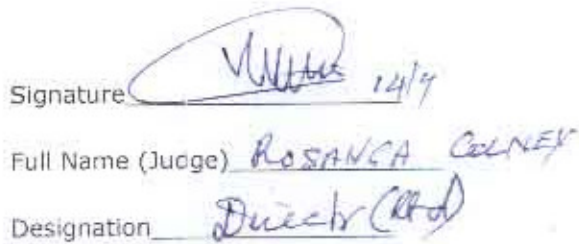 Signature 14/7
Full Name (Judge) ROSANGA COLNEY
Designation Director (Rtd)